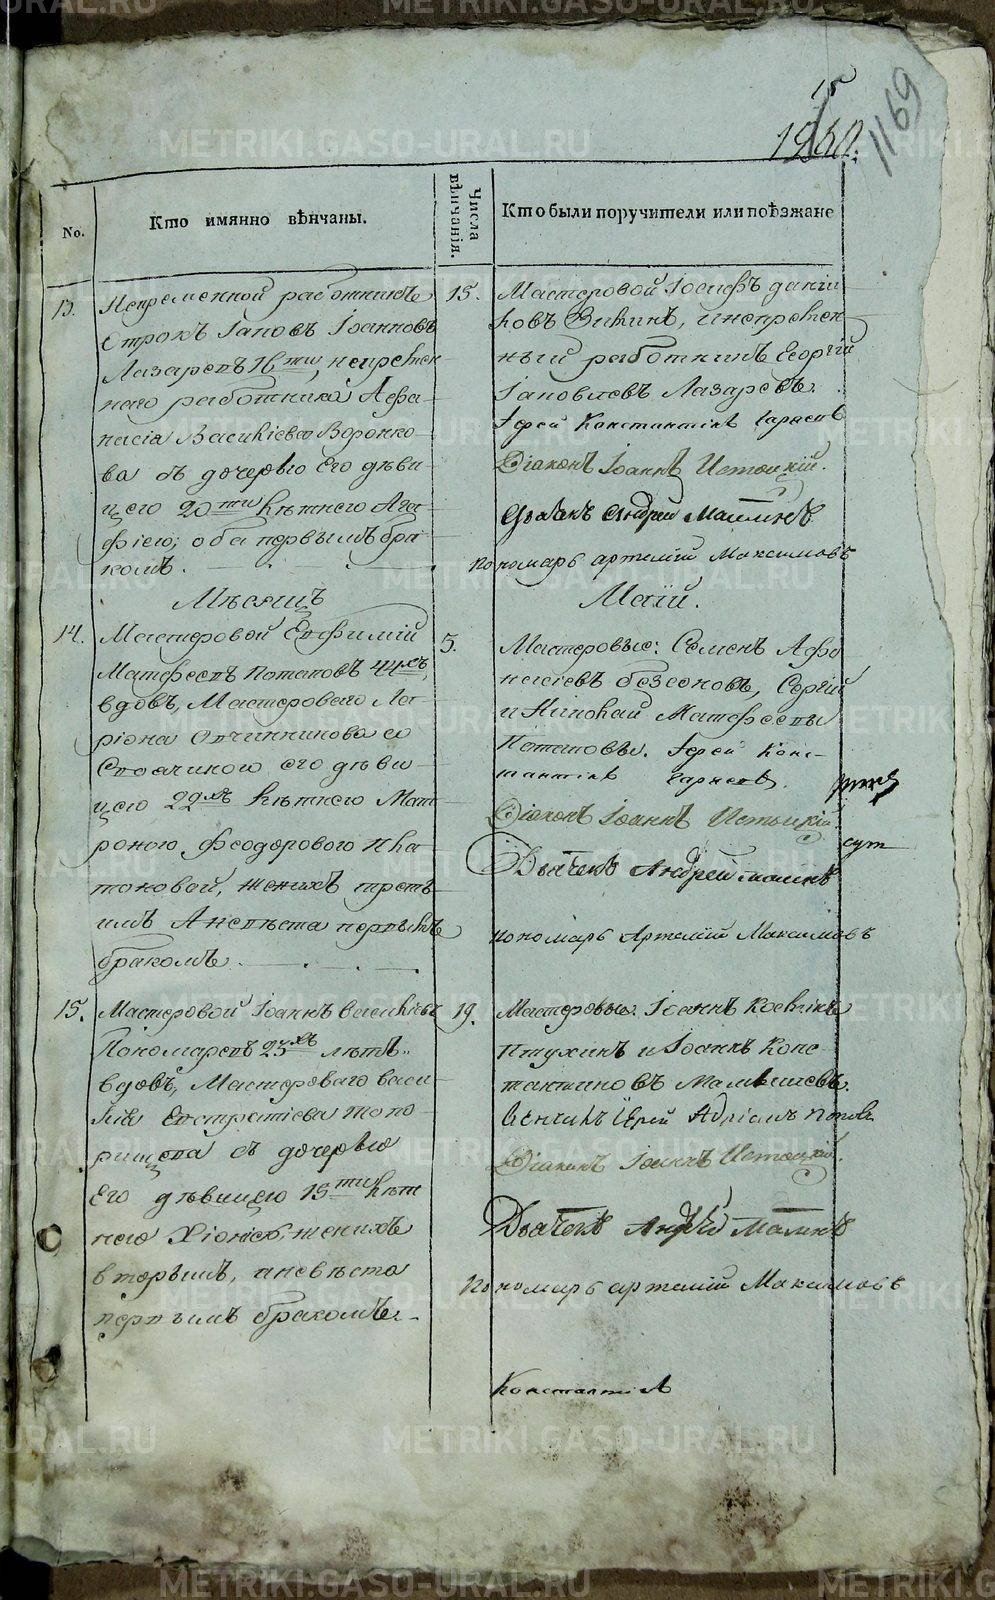 1169
No.
Кто имянно вѣнчаны.
Числа вѣнчанія.
Кто были поручители или поѣзжане
13.
Непременной работникъ
Отрокъ Іаковъ Іоанновъ
Лазаревъ 16ти, непремен
наго работника Афа
насія Василіева Воронко
ва съ дочерью его дѣви
цею 20ти лѣтнею Ага
фіею; оба первымъ бра
комъ.
15.
Мастеровой Іосифъ
Зыкинъ, и непремен
ный работникъ Георгій
Іаковлевъ Лазаревъ.
Іерей Константинъ
Діаконъ Іоаннъ Истоцкій.
Дьячекъ Андрей Маминъ
Пономарь Артемій Максимовъ
Мѣсяцъ
Маій.
14.
Мастеровой Евфимій
Матфеевъ Потаповъ 44хъ,
вдовъ, Мастероваго Ла
ріона Овчинникова
его дѣви
цею 22хъ лѣтнею Мат
роною Феодоровою
женихъ треть
имъ А невѣста первымъ
бракомъ.
5.
Мастеровые: Семенъ Афо
насіевъ Сергій
и Николай Матфеевы
Потаповы. Іерей Конс
тантинъ
Діаконъ Іоаннъ Истоцкій.
Дьячекъ Андрей Маминъ
пономарь Артемій Максимовъ
15.
Мастеровой Іоаннъ Васильевъ
Пономаревъ 25хъ лѣтъ
вдовъ, Мастероваго Васи
лія Евстратіева Топо
рищева съ дочерью
Его дѣвицею 18ти лѣт
нею Хіоніею, женихъ
вторымъ, а невѣста
первымъ бракомъ.
19.
Мастеровые. Іоаннъ
Птухинъ и Іоаннъ Конс
тантиновъ Малышевъ.
Венчалъ Іерей Адріанъ Поповъ
Діаконъ Іоаннъ Истоцкій.
Дьячекъ Андрей Маминъ
Пономарь Артемій Максимовъ
Константинъ
METRIKI.GASO-URAL.RU